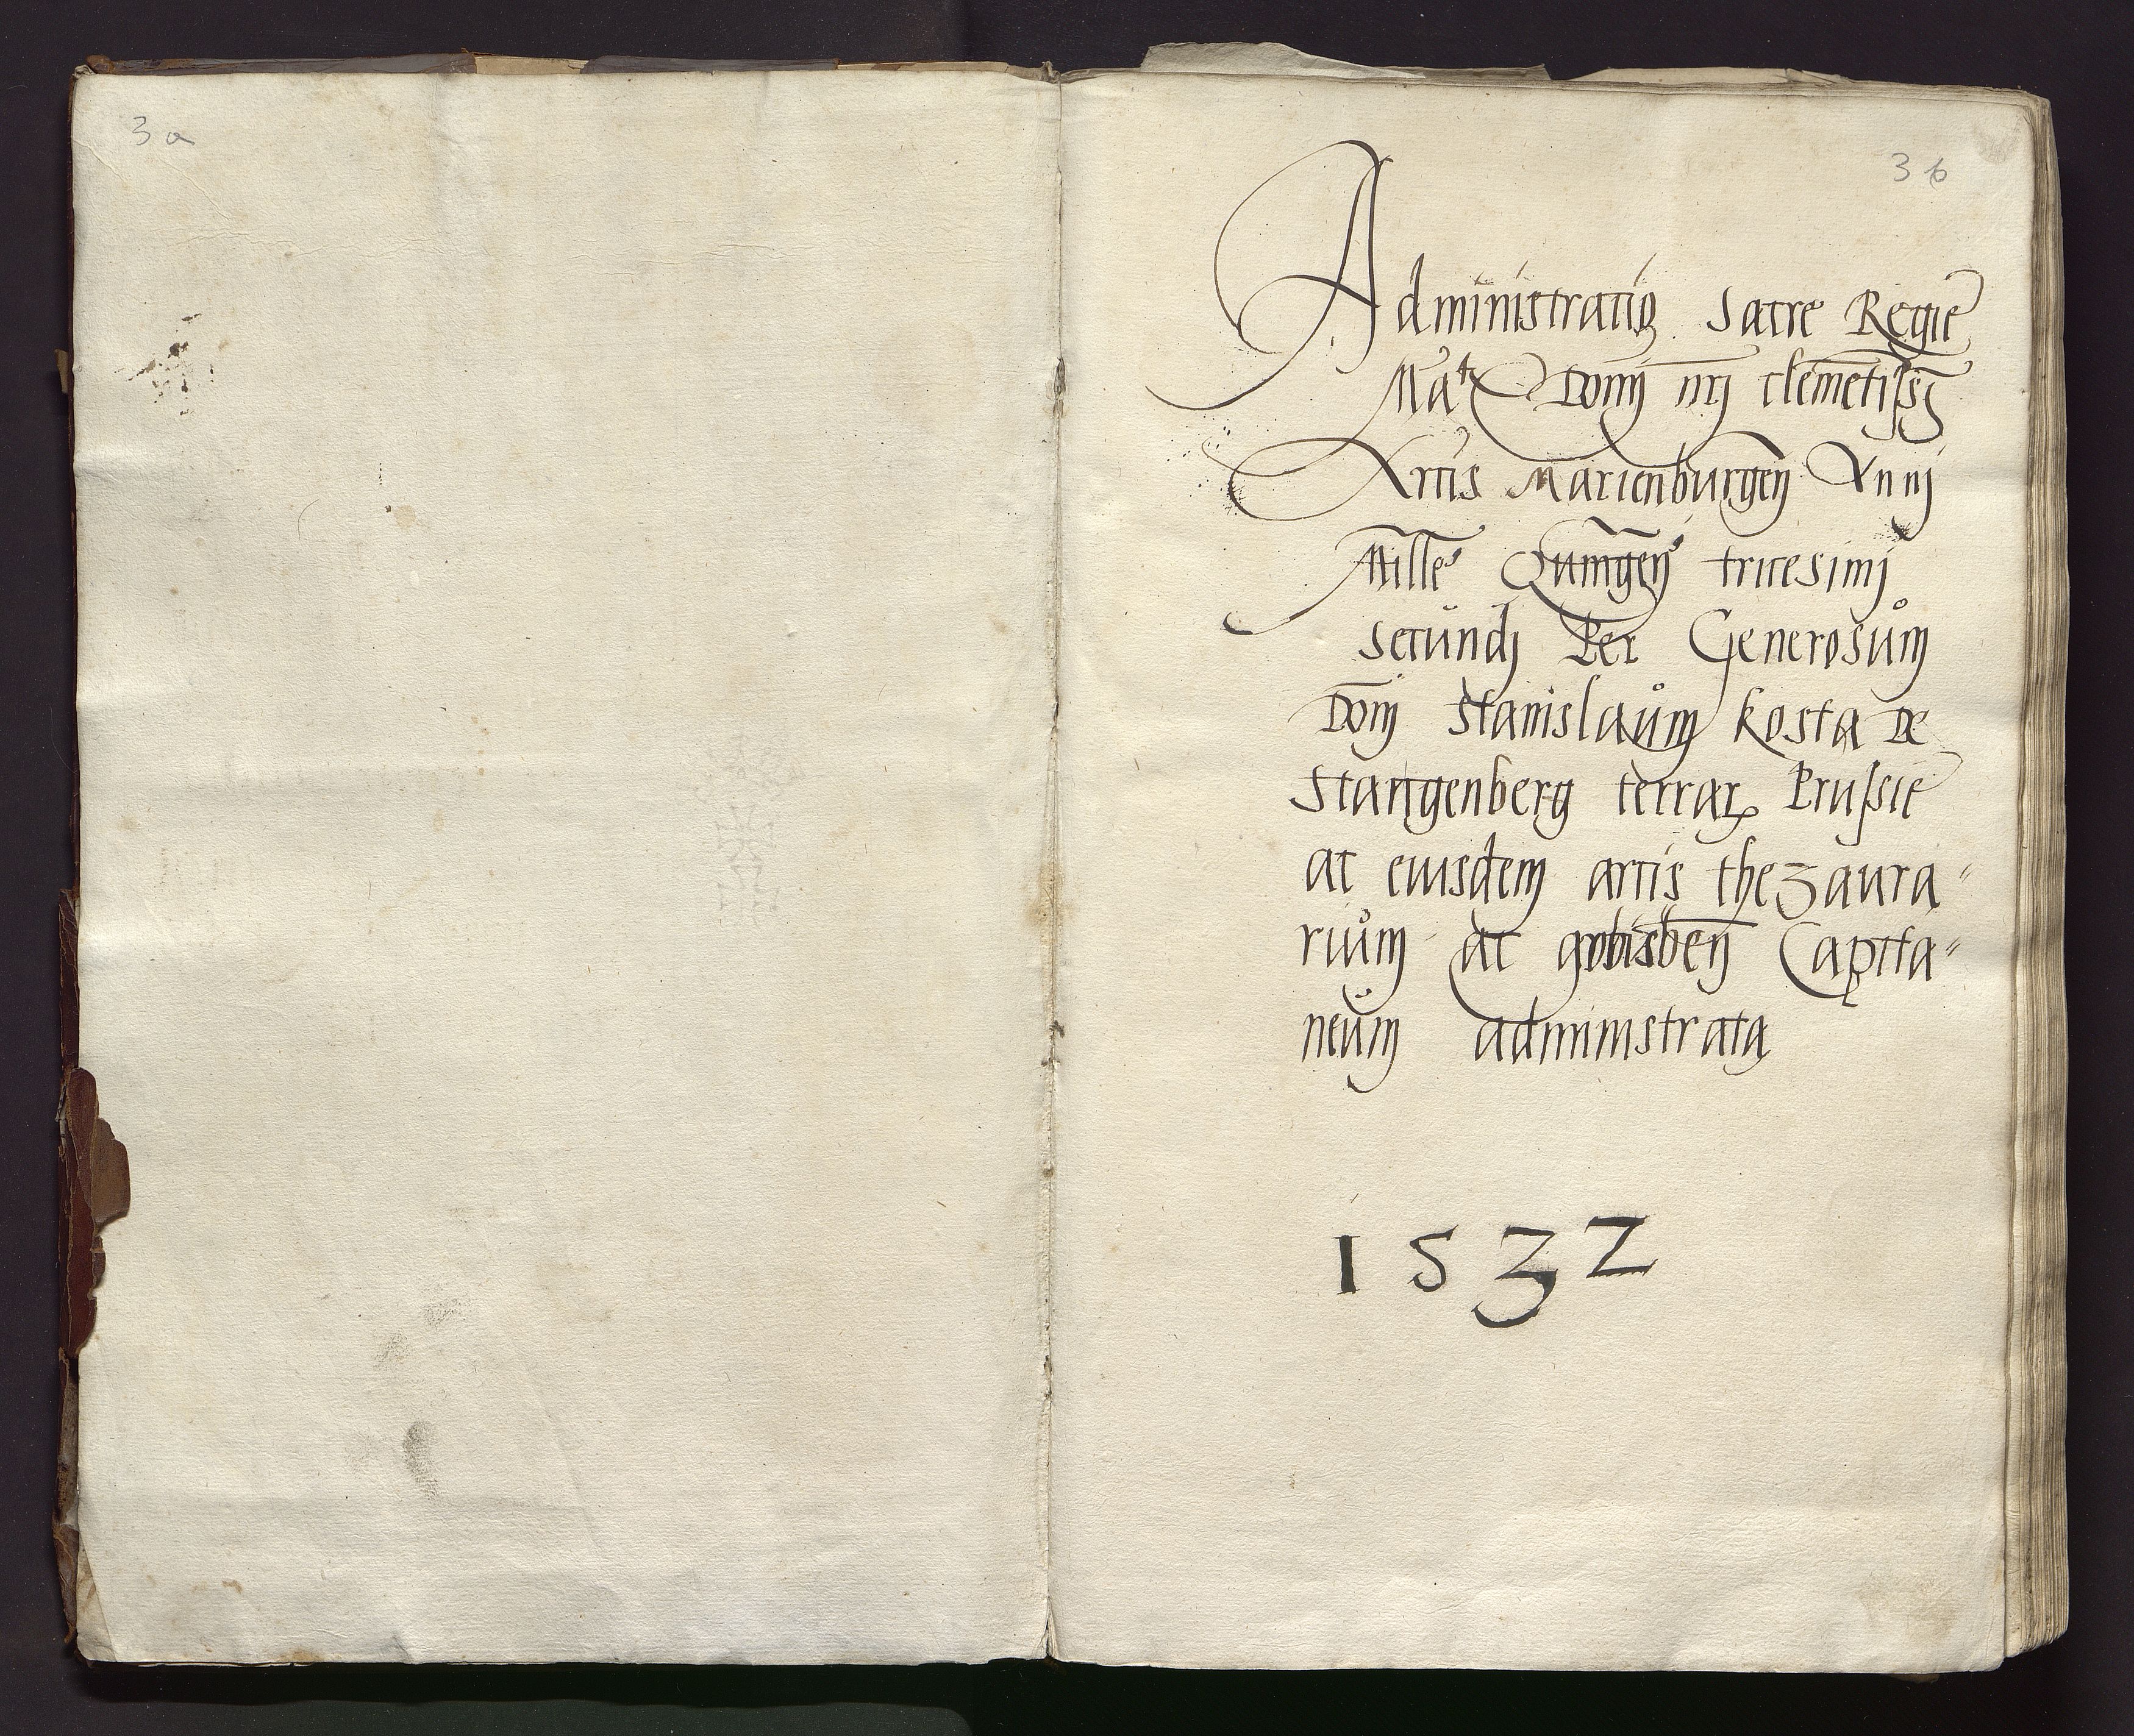 3a
3b
Administratio Sacre Regie
Mat Domj nrj clemetissj
Arcis Marienburgen Annj
Milles Quingen tricesimj
secundj Per Generosum
Dom Stanislaum Kosta De
Stangenberg terrar Prussie
ac eiusdem arcis thezaura"
rium ac Capita"
neum administrata
1532